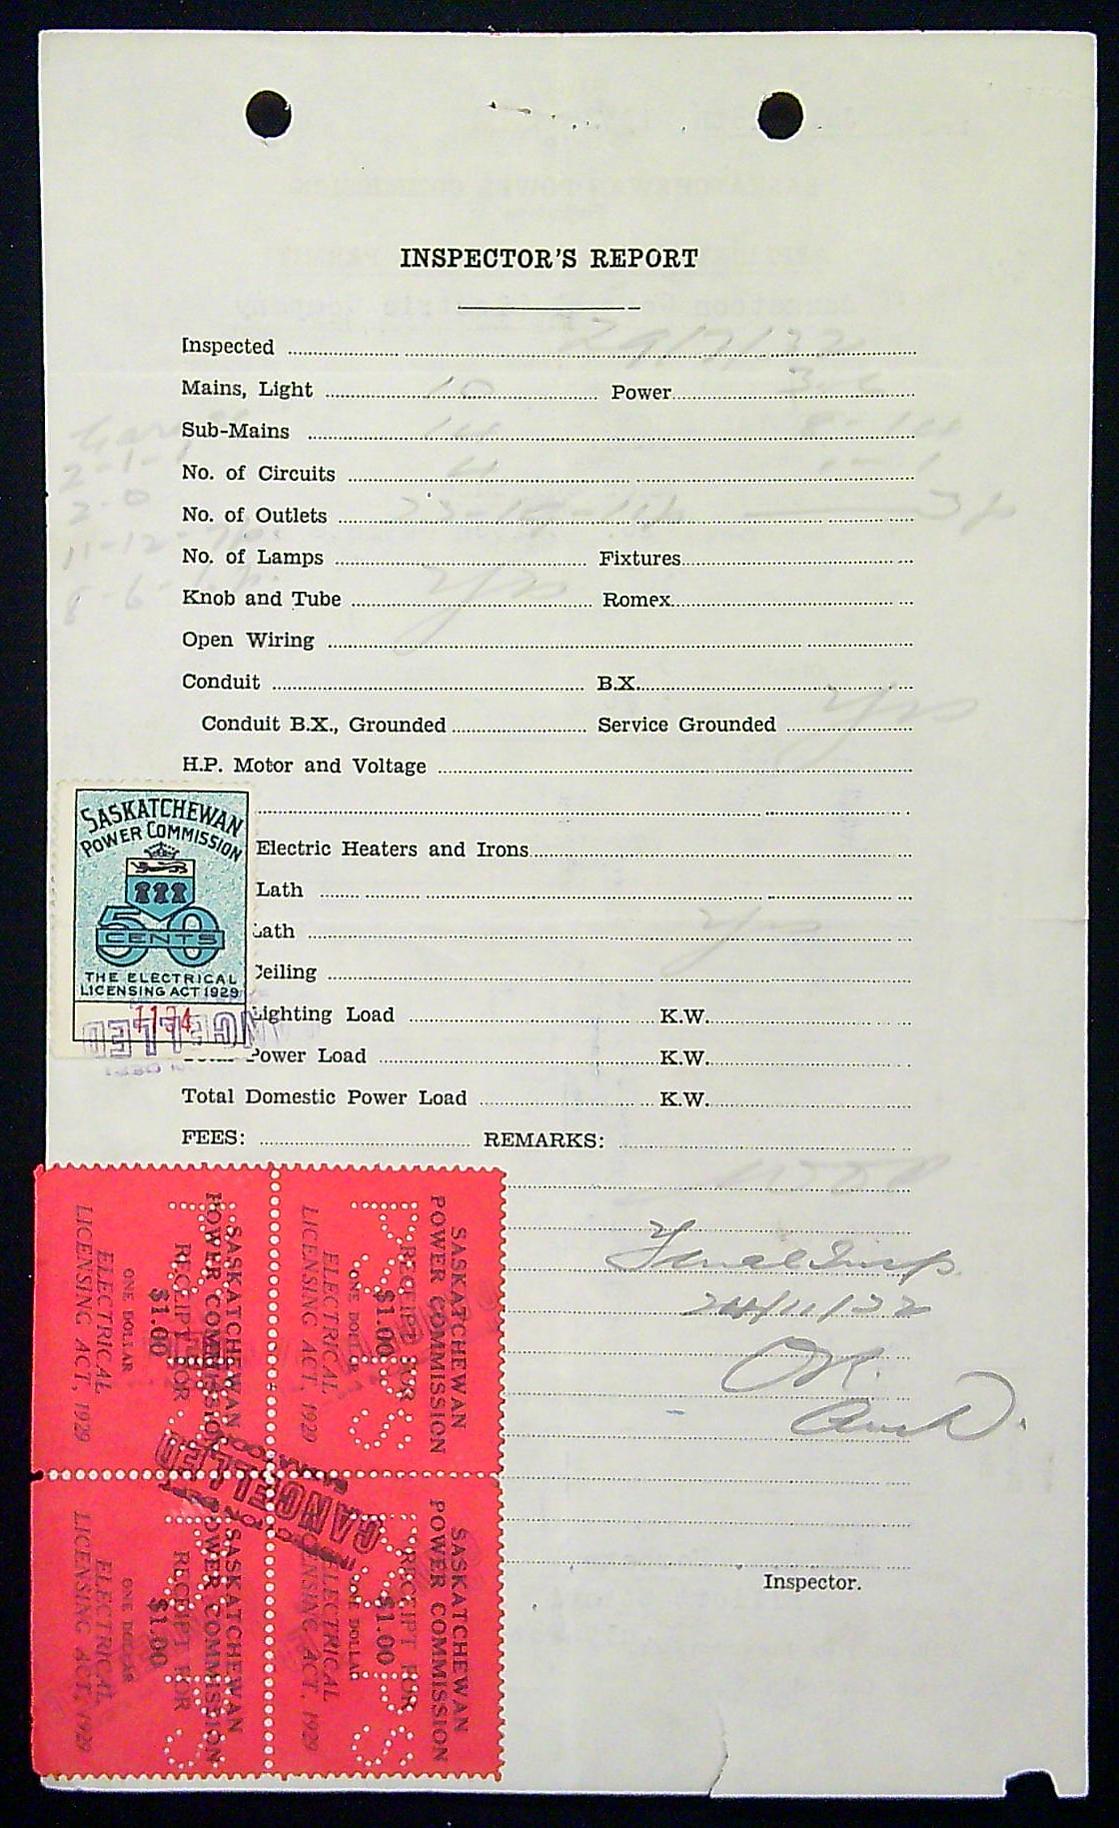 INSPECTOR'S REPORT
Inspected 29/7/32
Mains, Light 10 Power 3-6
Sub-Mains 14 8-14
No. of Circuits 4
2-1-1
No. of Outlets
2-0
11-12
No. of Lamps Fixtures
Knob and Tube yes Romex
8-6
Open Wiring
Conduit B.X.
Conduit B.X., Grounded Service Grounded yes
H.P. Motor and Voltage
Electric Heaters and Irons
Lath
Lath yes
Ceiling
Lighting Load K.W.
Power Load K.W.
Total Domestic Power Load K.W.
FEES: REMARKS:
Final Insp
24/11/32
OK.
Inspector.
SASKATCHEWAN
POWER COMMISSION
50
CENTS
THE ELECTRICAL
LICENSING ACT 1929
1134
CANCELLED
SASKATCHEWAN
POWER COMMISSION
RECEIPT FOR
$1.00
ONE DOLLAR
ELECTRICAL
LICENSING ACT, 1929
SASKATCHEWAN
POWER COMMISSION
RECEIPT FOR
$1.00
ONE DOLLAR
ELECTRICAL
LICENSING ACT, 1929
SASKATCHEWAN
POWER COMMISSION
RECEIPT FOR
$1.00
ONE DOLLAR
ELECTRICAL
LICENSING ACT, 1929
SASKATCHEWAN
POWER COMMISSION
RECEIPT FOR
$1.00
ONE DOLLAR
ELECTRICAL
LICENSING ACT, 1929
CANCELLED